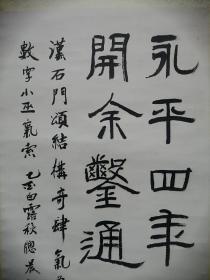 永平四年
開余鑿通
漢石門頌結構奇肆氣
數字小巫氣索
白露秋
晨